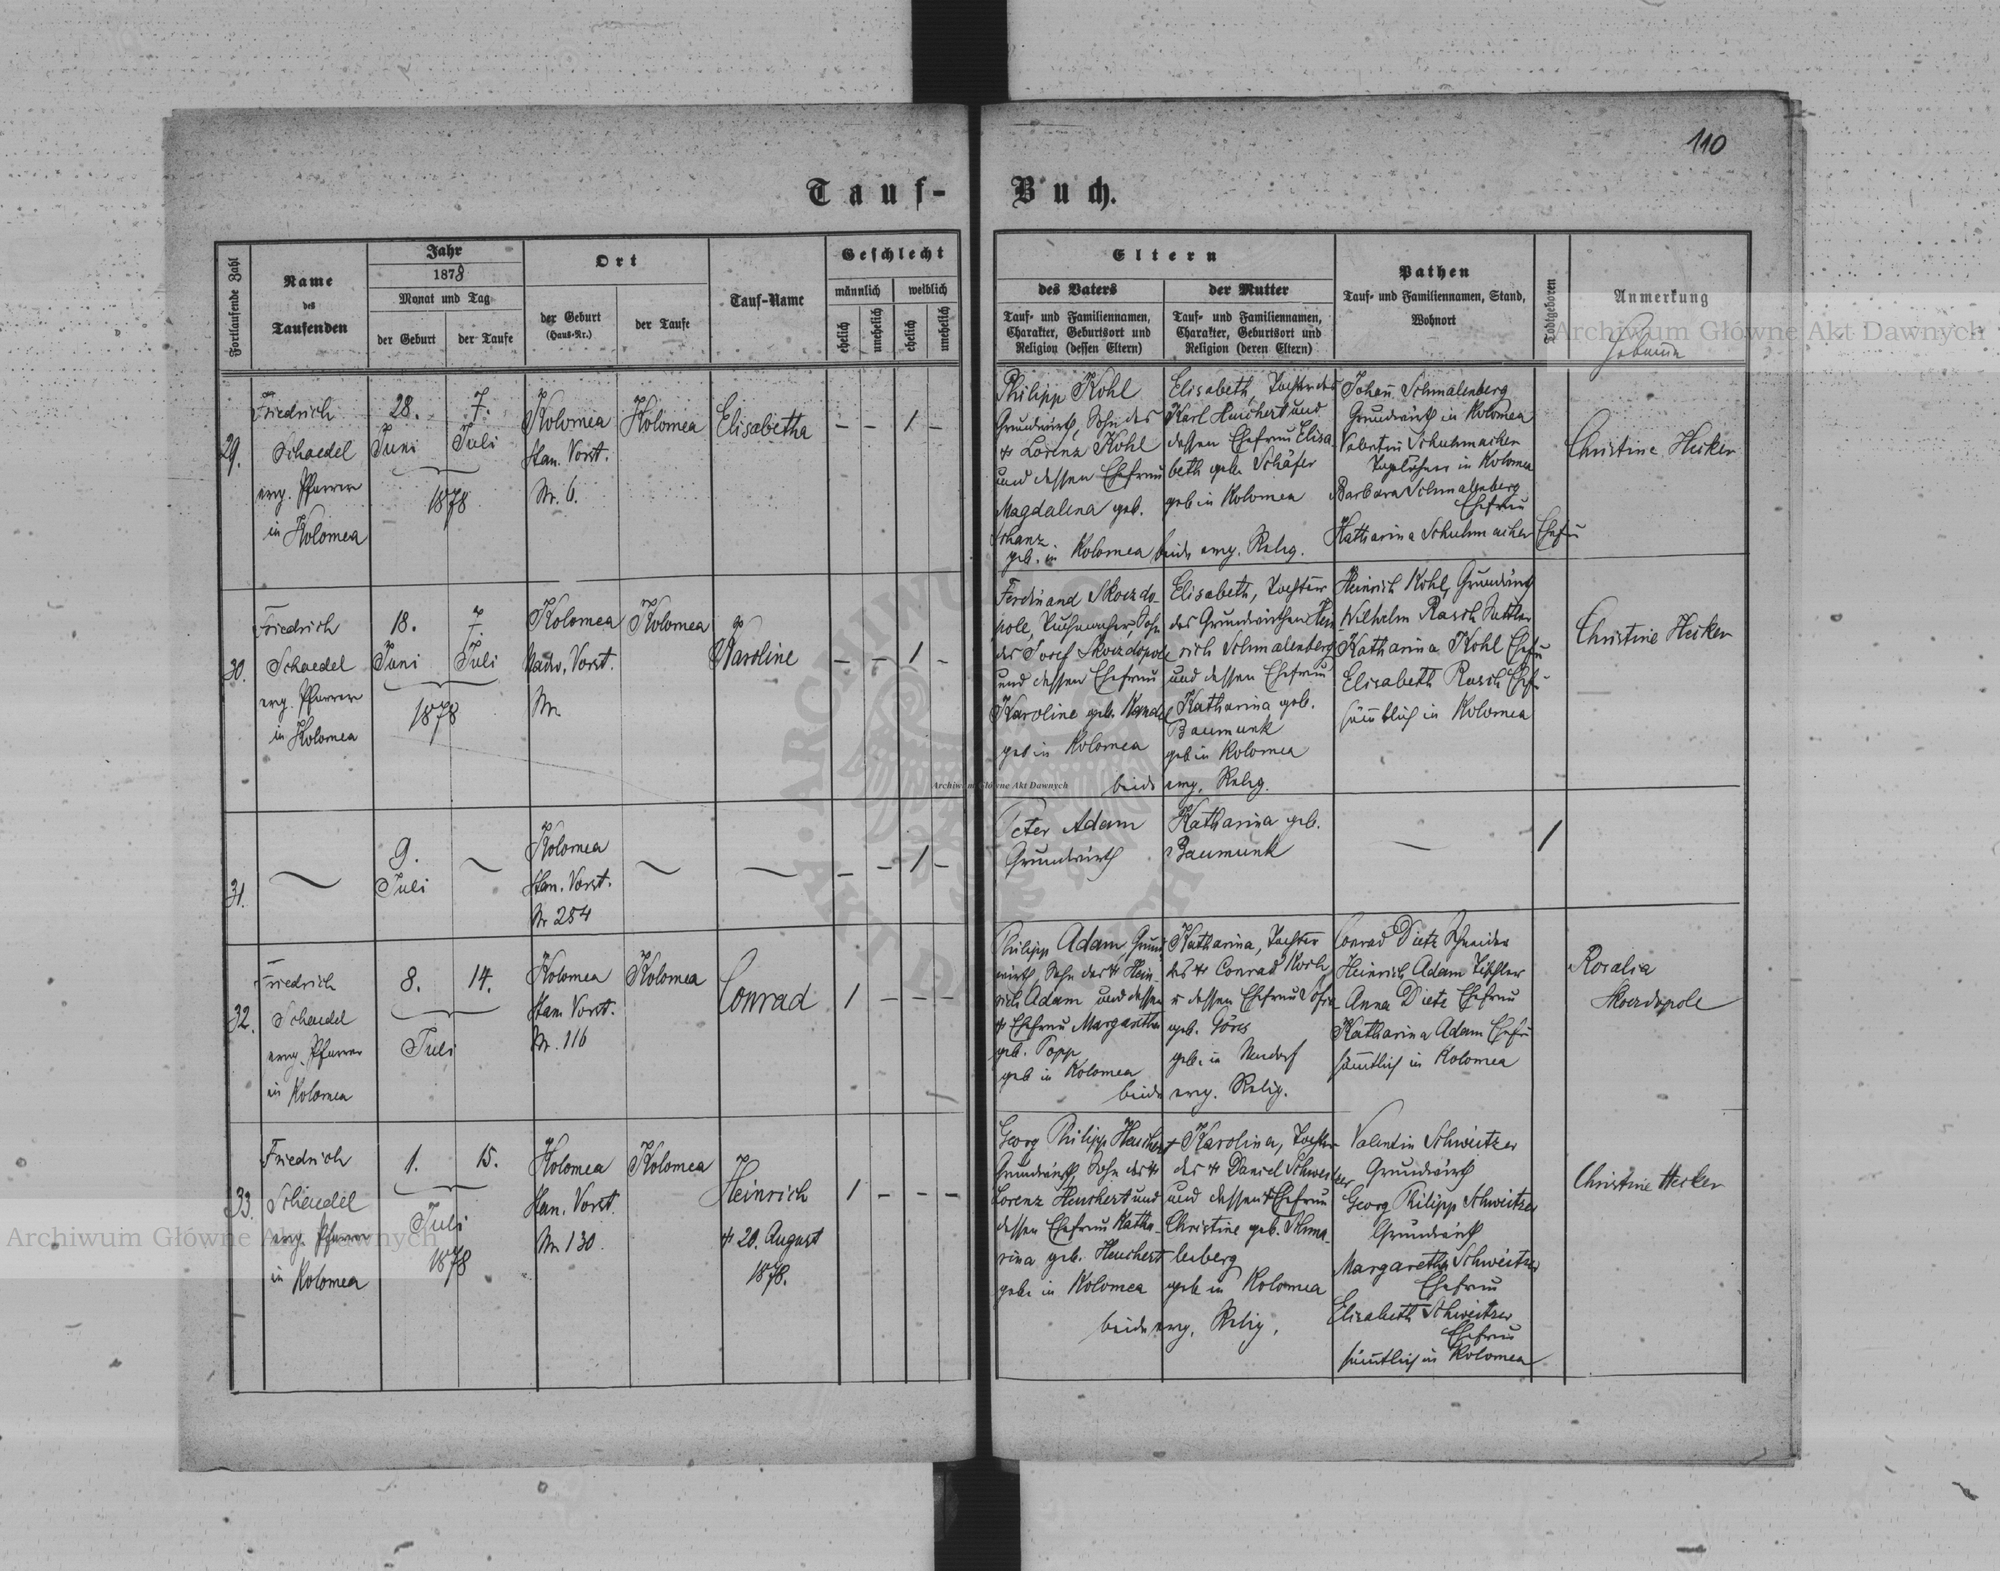 110
Tauf-Buch.
Fortlaufende Zahl
Name
des
Taufenden
Jahr
1878
Monat und Tag
der Geburt
der Taufe
Ort
der Geburt
(Haus-Nr.)
der Taufe
Tauf-Name
Geschlecht
männlich
weiblich
ehelich
unehelich
ehelich
unehelich
Eltern
des Vaters
Tauf- und Familiennamen,
Charakter, Geburtsort und
Religion (dessen Eltern)
der Mutter
Tauf- und Familiennamen,
Charakter, Geburtsort und
Religion (deren Eltern)
Pathen
Tauf- und Familiennamen, Stand,
Wohnort
Todtgeboren
Anmerkung
Hebamme
29.
Friedrich
Schaedel
evg. Pfarrer
in Kolomea
28.
Juni
7.
Juli
1878
Kolomea
Stan. Vorst.
Nr. 6.
Kolomea
Elisabetha
– – 1 –
Philipp Kohl
Grundwirth, Sohn des
† Lorenz Kohl
und dessen Ehefrau
Magdalena geb.
Schanz
geb. in Kolomea
Elisabeth, Tochter des
Karl Heuchert und
dessen Ehefrau Elisa-
beth geb. Schäfer
geb in Kolomea
beide evg. Relig.
Johann Schmalenberg
Grundwirth in Kolomea
Valentin Schuhmacher
Taglöhner in Kolomea
Barbara Schmalenberg
Ehefrau
Katharina Schuhmacher Ehefrau
Christine Hecker
30.
Friedrich
Schaedel
evg. Pfarrer
in Kolomea
18.
Juni
7.
Juli
1878
Kolomea
Nadw. Vorst.
Nr.
Kolomea
Karoline
– – 1 –
Ferdinand Skorzdo-
pole, Tuchmacher, Sohn
des Josef Skorzdopole
und dessen Ehefrau
Karoline geb. Kandel
geb in Kolomea
Elisabeth, Tochter
des Grundwirthen Hein-
rich Schmalenberg
und dessen Ehefrau
Katharina geb.
Baumunk
geb in Kolomea
beide evg. Relig.
Heinrich Kohl, Grundwirth
Wilhelm Rasch Sattler
Katharina Kohl Ehefrau
Elisabeth Rasch Ehefr.
sämtlich in Kolomea
Christine Hecker
31.
9.
Juli
Kolomea
Stan. Vorst.
Nr 254
– – 1 –
Peter Adam
Grundwirth
Katharina geb.
Baumunk
–
1
32.
Friedrich
Schaedel
evg. Pfarrer
in Kolomea
8.
14.
Juli
Kolomea
Stan. Vorst.
Nr. 116
Kolomea
Conrad
1 – – –
Philipp Adam, Grund-
wirth, Sohn des † Hein-
rich Adam und dessen
† Ehefrau Margaretha
geb. Popp
geb in Kolomea
Katharina, Tochter
des † Conrad Koch
u dessen Ehefrau Sofia
geb. Göres
geb. in Neudorf
beide evg. Relig.
Conrad Dietz Schneider
Heinrich Adam Tischler
Anna Dietz Ehefrau
Katharina Adam Ehefr.
sämtlich in Kolomea
Rosalia
Skorzdopole
33.
Friedrich
Schaedel
evg. Pfarrer
in Kolomea
1.
15.
Juli
1878
Kolomea
Stan. Vorst.
Nr 130.
Kolomea
Heinrich
† 20. August
1878.
1 – – –
Georg Philipp Heuchert
Grundwirth, Sohn des †
Lorenz Heuchert und
dessen Ehefrau Katha-
rina geb. Heuchert
geb. in Kolomea
Karolina, Tochter
des † Daniel Schweitzer
und dessen † Ehefrau
Christine geb. Schma-
lenberg
geb in Kolomea
beide evg. Relig.
Valentin Schweitzer
Grundwirth
Georg Philipp Schweitzer
Grundwirth
Margaretha Schweitzer
Ehefrau
Elisabeth Schweitzer
Ehefrau
sämtlich in Kolomea
Christine Hecker
Archiwum Główne Akt Dawnych
Archiwum Główne Akt Dawnych
Archiwum Główne Akt Dawnych